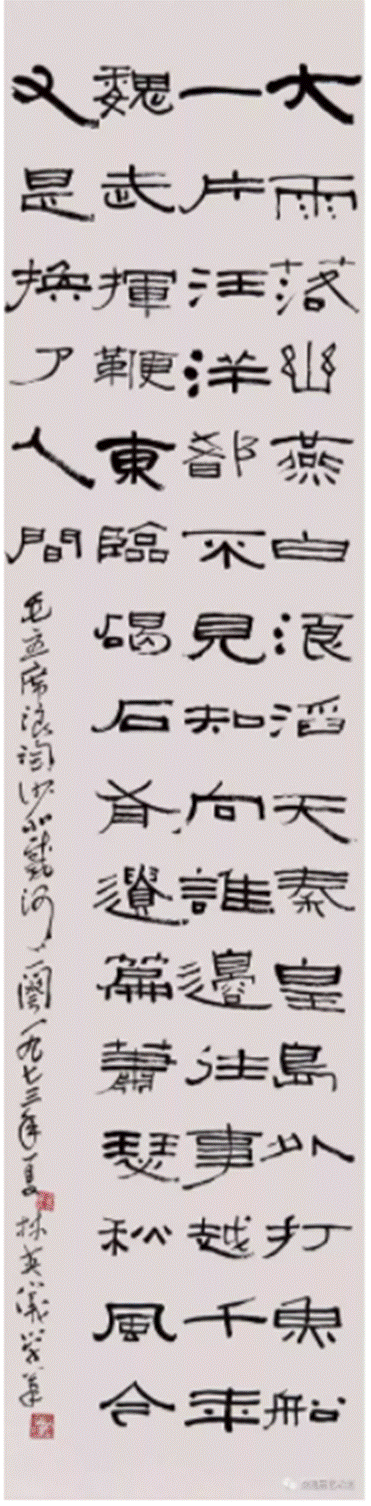 大雨落幽燕白浪滔天秦皇島外打魚船
一片汪洋都不見知向誰邊往事越千年
魏武揮鞭東臨碣石有遺篇蕭瑟秋風今
又是換了人間
毛主席浪淘沙北戴河一闋一九七三年夏林英儀